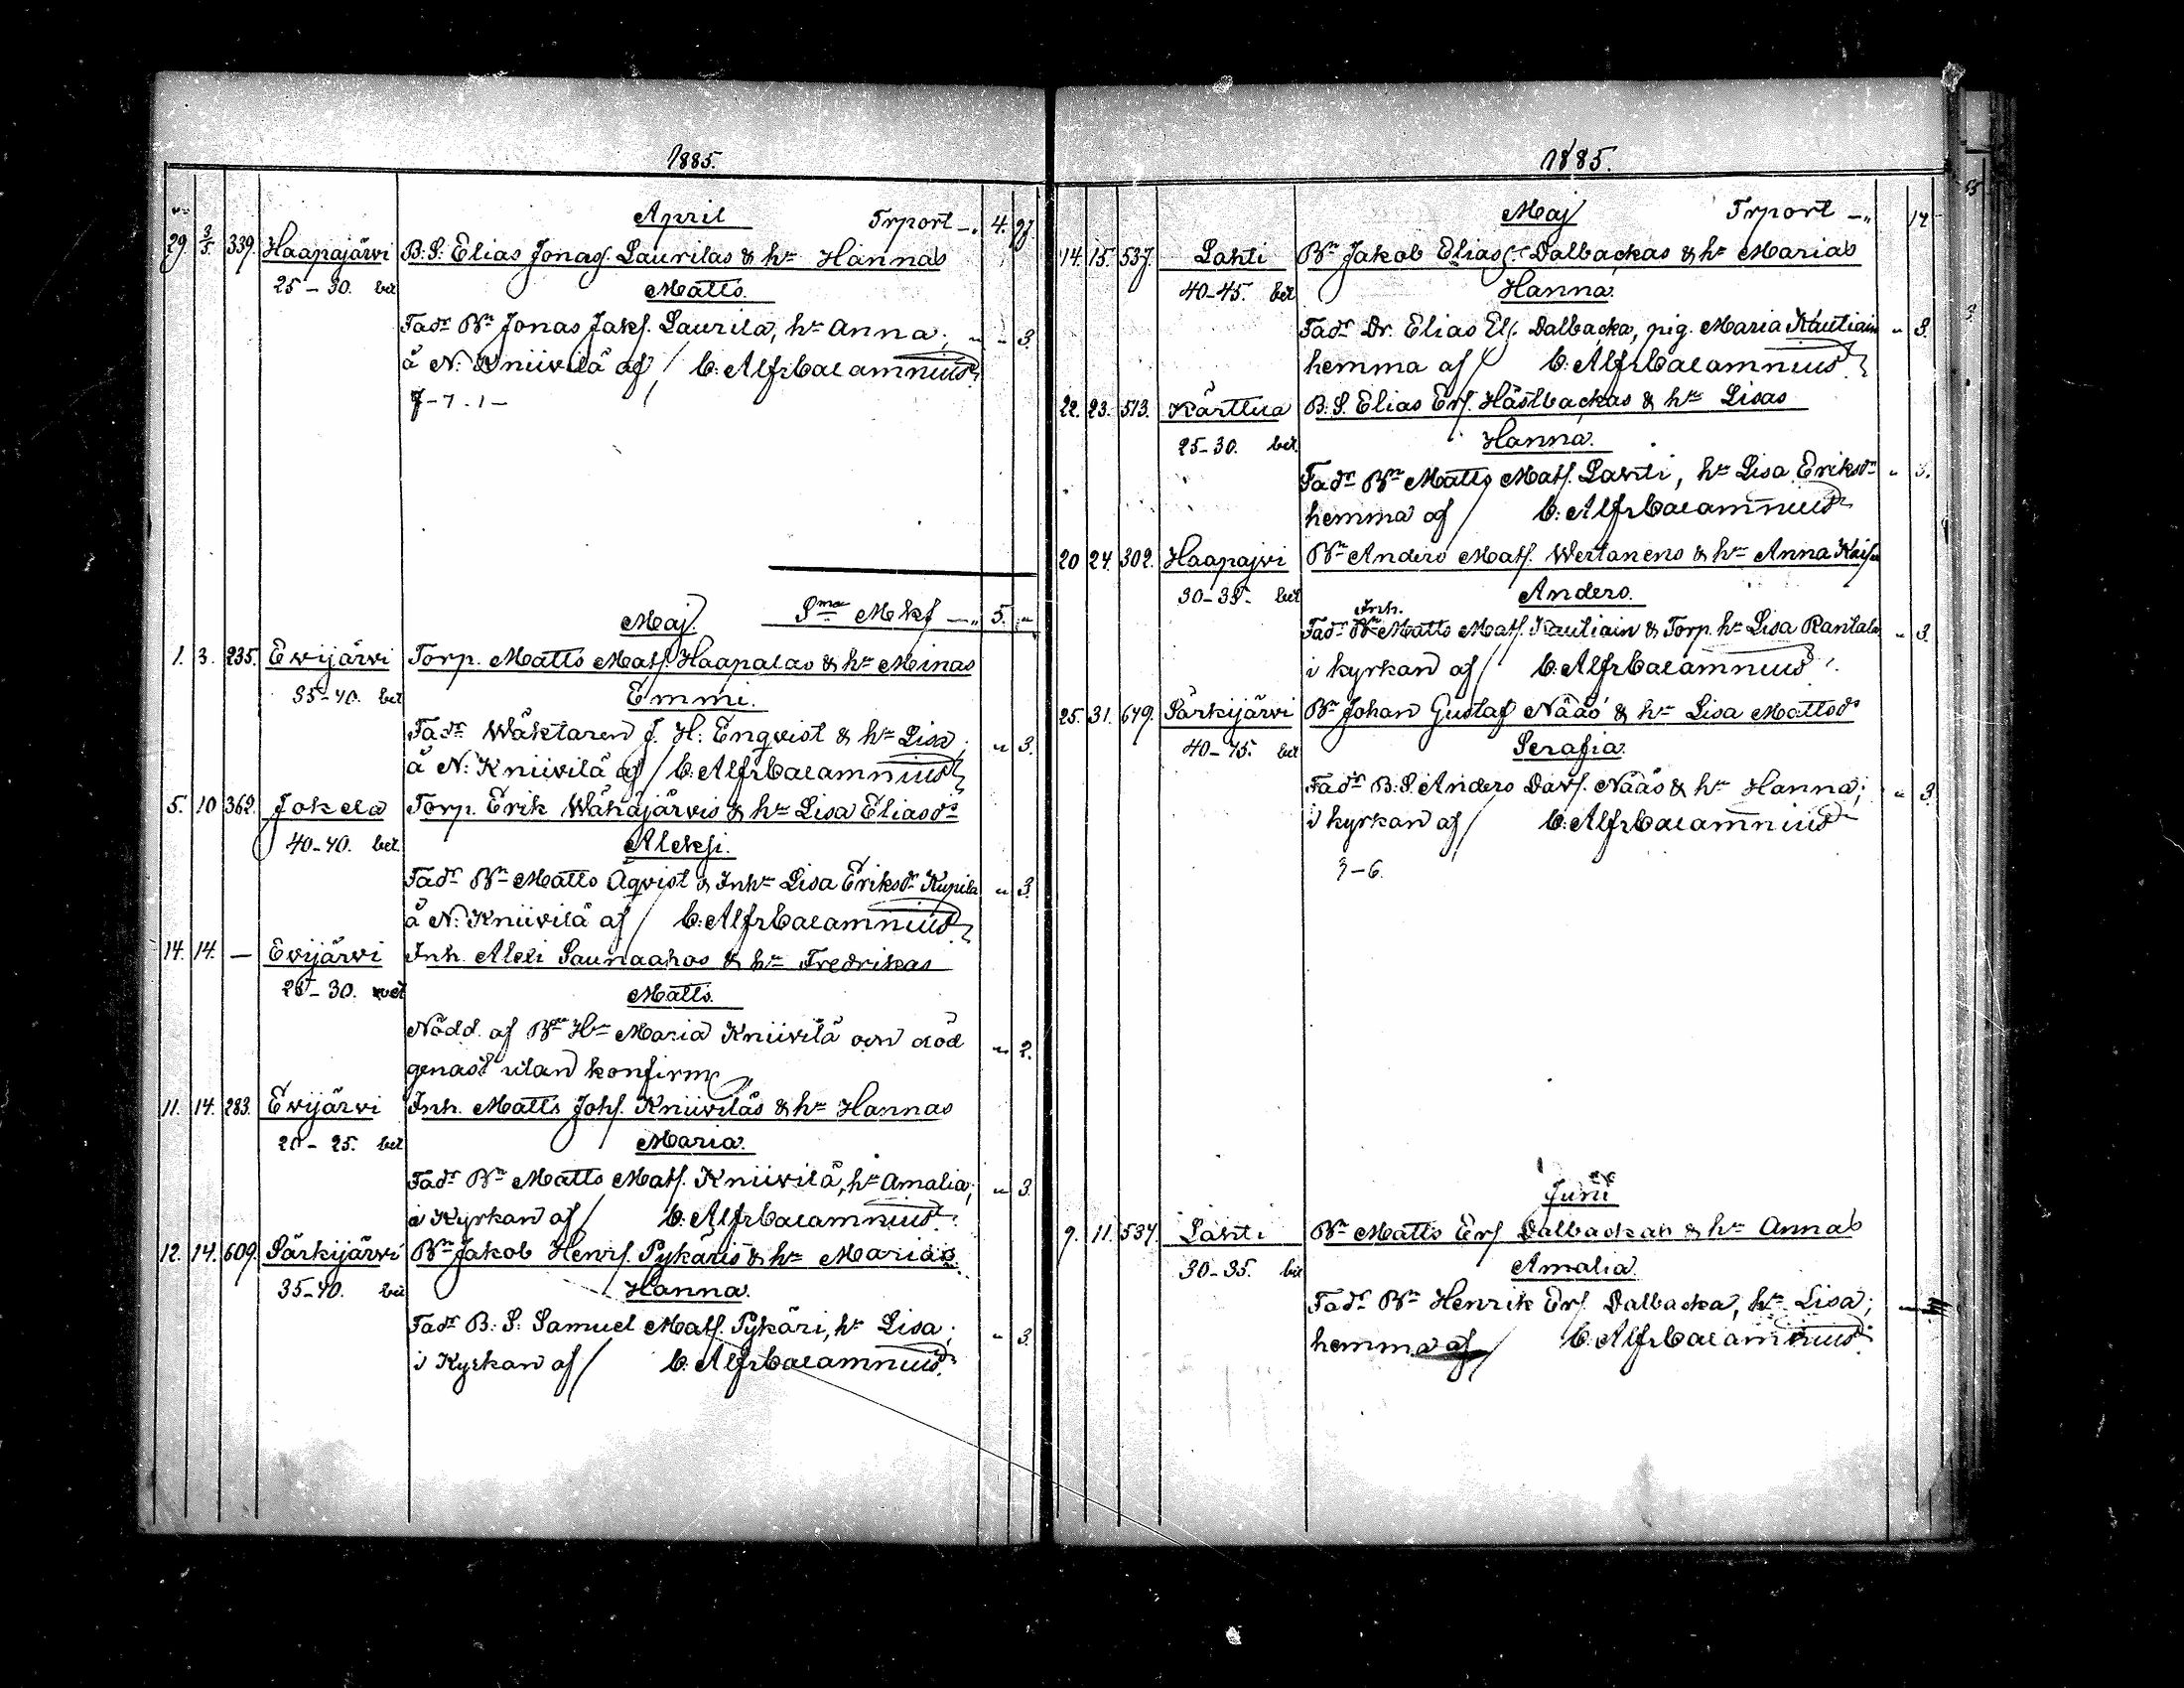 1885.
April Trport — „ 4. 97.
29. 3/5. 339. Haapajärvi B: S: Elias Jonass. Laurilas & hu Hannas
25–30. bet Matts.
Fadr Bn Jonas Jaks. Laurila, hu Anna; „ „ 3.
å N: Kniivilä af / C: Alfr Calamnius
7–7.1–
Sma Mkf — „ 5. „
Maj
1. 3. 235. Evijärvi Torp. Matts Mats. Haapalas & hu Minas
35–40. bet Emmi.
Fadr Wäktaren J. H: Enqvist & hu Lisa; „ 3.
å N: Kniivilä af / C: Alfr Calamnius
5. 10 362. Jokela Torp. Erik Wähäjärvis & hu Lisa Eliasdr
40–40. bet. Aleksi.
Fadr Bn Matts Åqvist & Inhu Lisa Eriksdr Kupila „ 3.
å N: Kniivilä af / C: Alfr Calamnius
14. 14. — Evijärvi Inh. Alexi Saunaahos & hu Fredrikas
25–30. Matts.
Nödd. af Bn Hu Maria Kniivilä och död „ 2.
genast utan konfirm
11. 14. 283. Evijärvi Inh. Matts Johs. Kniiviläs & hu Hannas
20–25. bet Maria.
Fadr Bn Matts Mats. Kniivilä, hu Amalia; „ 3.
i Kyrkan af / C: Alfr Calamnius
12. 14. 609. Särkijärvi Bn Jakob Henrs. Pykäris & hu Marias
35–40. bet Hanna.
Fadr B: S: Samuel Mats. Pykäri, hu Lisa; „ 3.
i Kyrkan af / C: Alfr Calamnius
1885.
Maj Trport — „ 17
14. 15. 537. Lahti Bn Jakob Elias. Dalbackas & hu Marias
40–45. bet Hanna.
Fadr Dr. Elias Els. Dalbacka, pig. Maria Kautiain „ 3.
hemma af / C: Alfr Calamnius
22. 23. 513. Kärttua B: S. Elias Ers. Hästbackas & hu Lisas
25–30. bet. Hanna.
Fadr Bn Matts Mats. Lahti, hu Lisa Eriksdr „ 3.
hemma af / C: Alfr Calamnius
20 24. 302. Haapajvi Bn Anders Mats. Wertanens & hu Anna Kaisa
30–35. bet Anders.
Inh.
Fadr Bn Matts Mats. Kautiain & Torp. hu Lisa Rantala „ 3.
i kyrkan af / C: Alfr Calamnius
25. 31. 649. Särkijärvi Bn Johan Gustaf Nääs & hu Lisa Mattsdr
40–45. bet Serafia.
Fadr B: S. Anders Davs. Nääs & hu Hanna; „ 3.
i kyrkan af / C: Alfr Calamnius
3–6.
Juni
9. 11. 537. Lahti Bn Matts Ers Dalbackas & hu Annas
30–35. bet Amalia.
Fadr Bn Henrik Ers. Dalbacka, hu Lisa;
hemma af / C: Alfr Calamnius